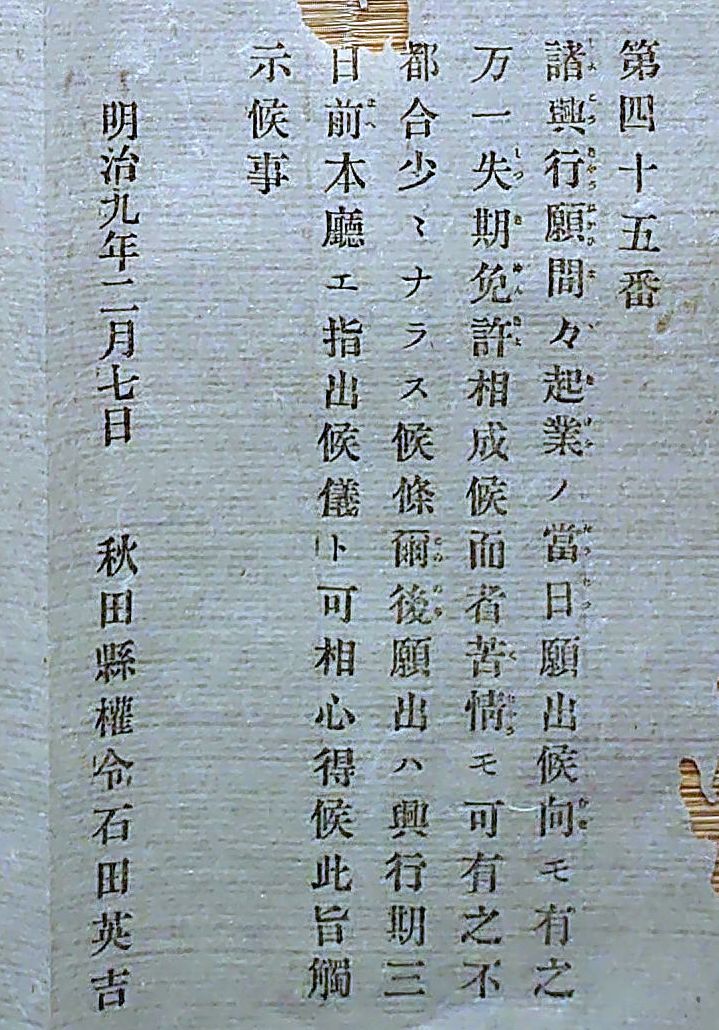 第四十五番
諸興行願間々起業ノ當日願出候向モ有之
万一失期免許相成候而者苦情モ可有之不
都合少ミナラス候條爾後願出ハ興行期三
日前本廳エ指出候儀ト可相心得候此旨觸
示候事
明治九年二月七日 秋田縣權令石田英吉